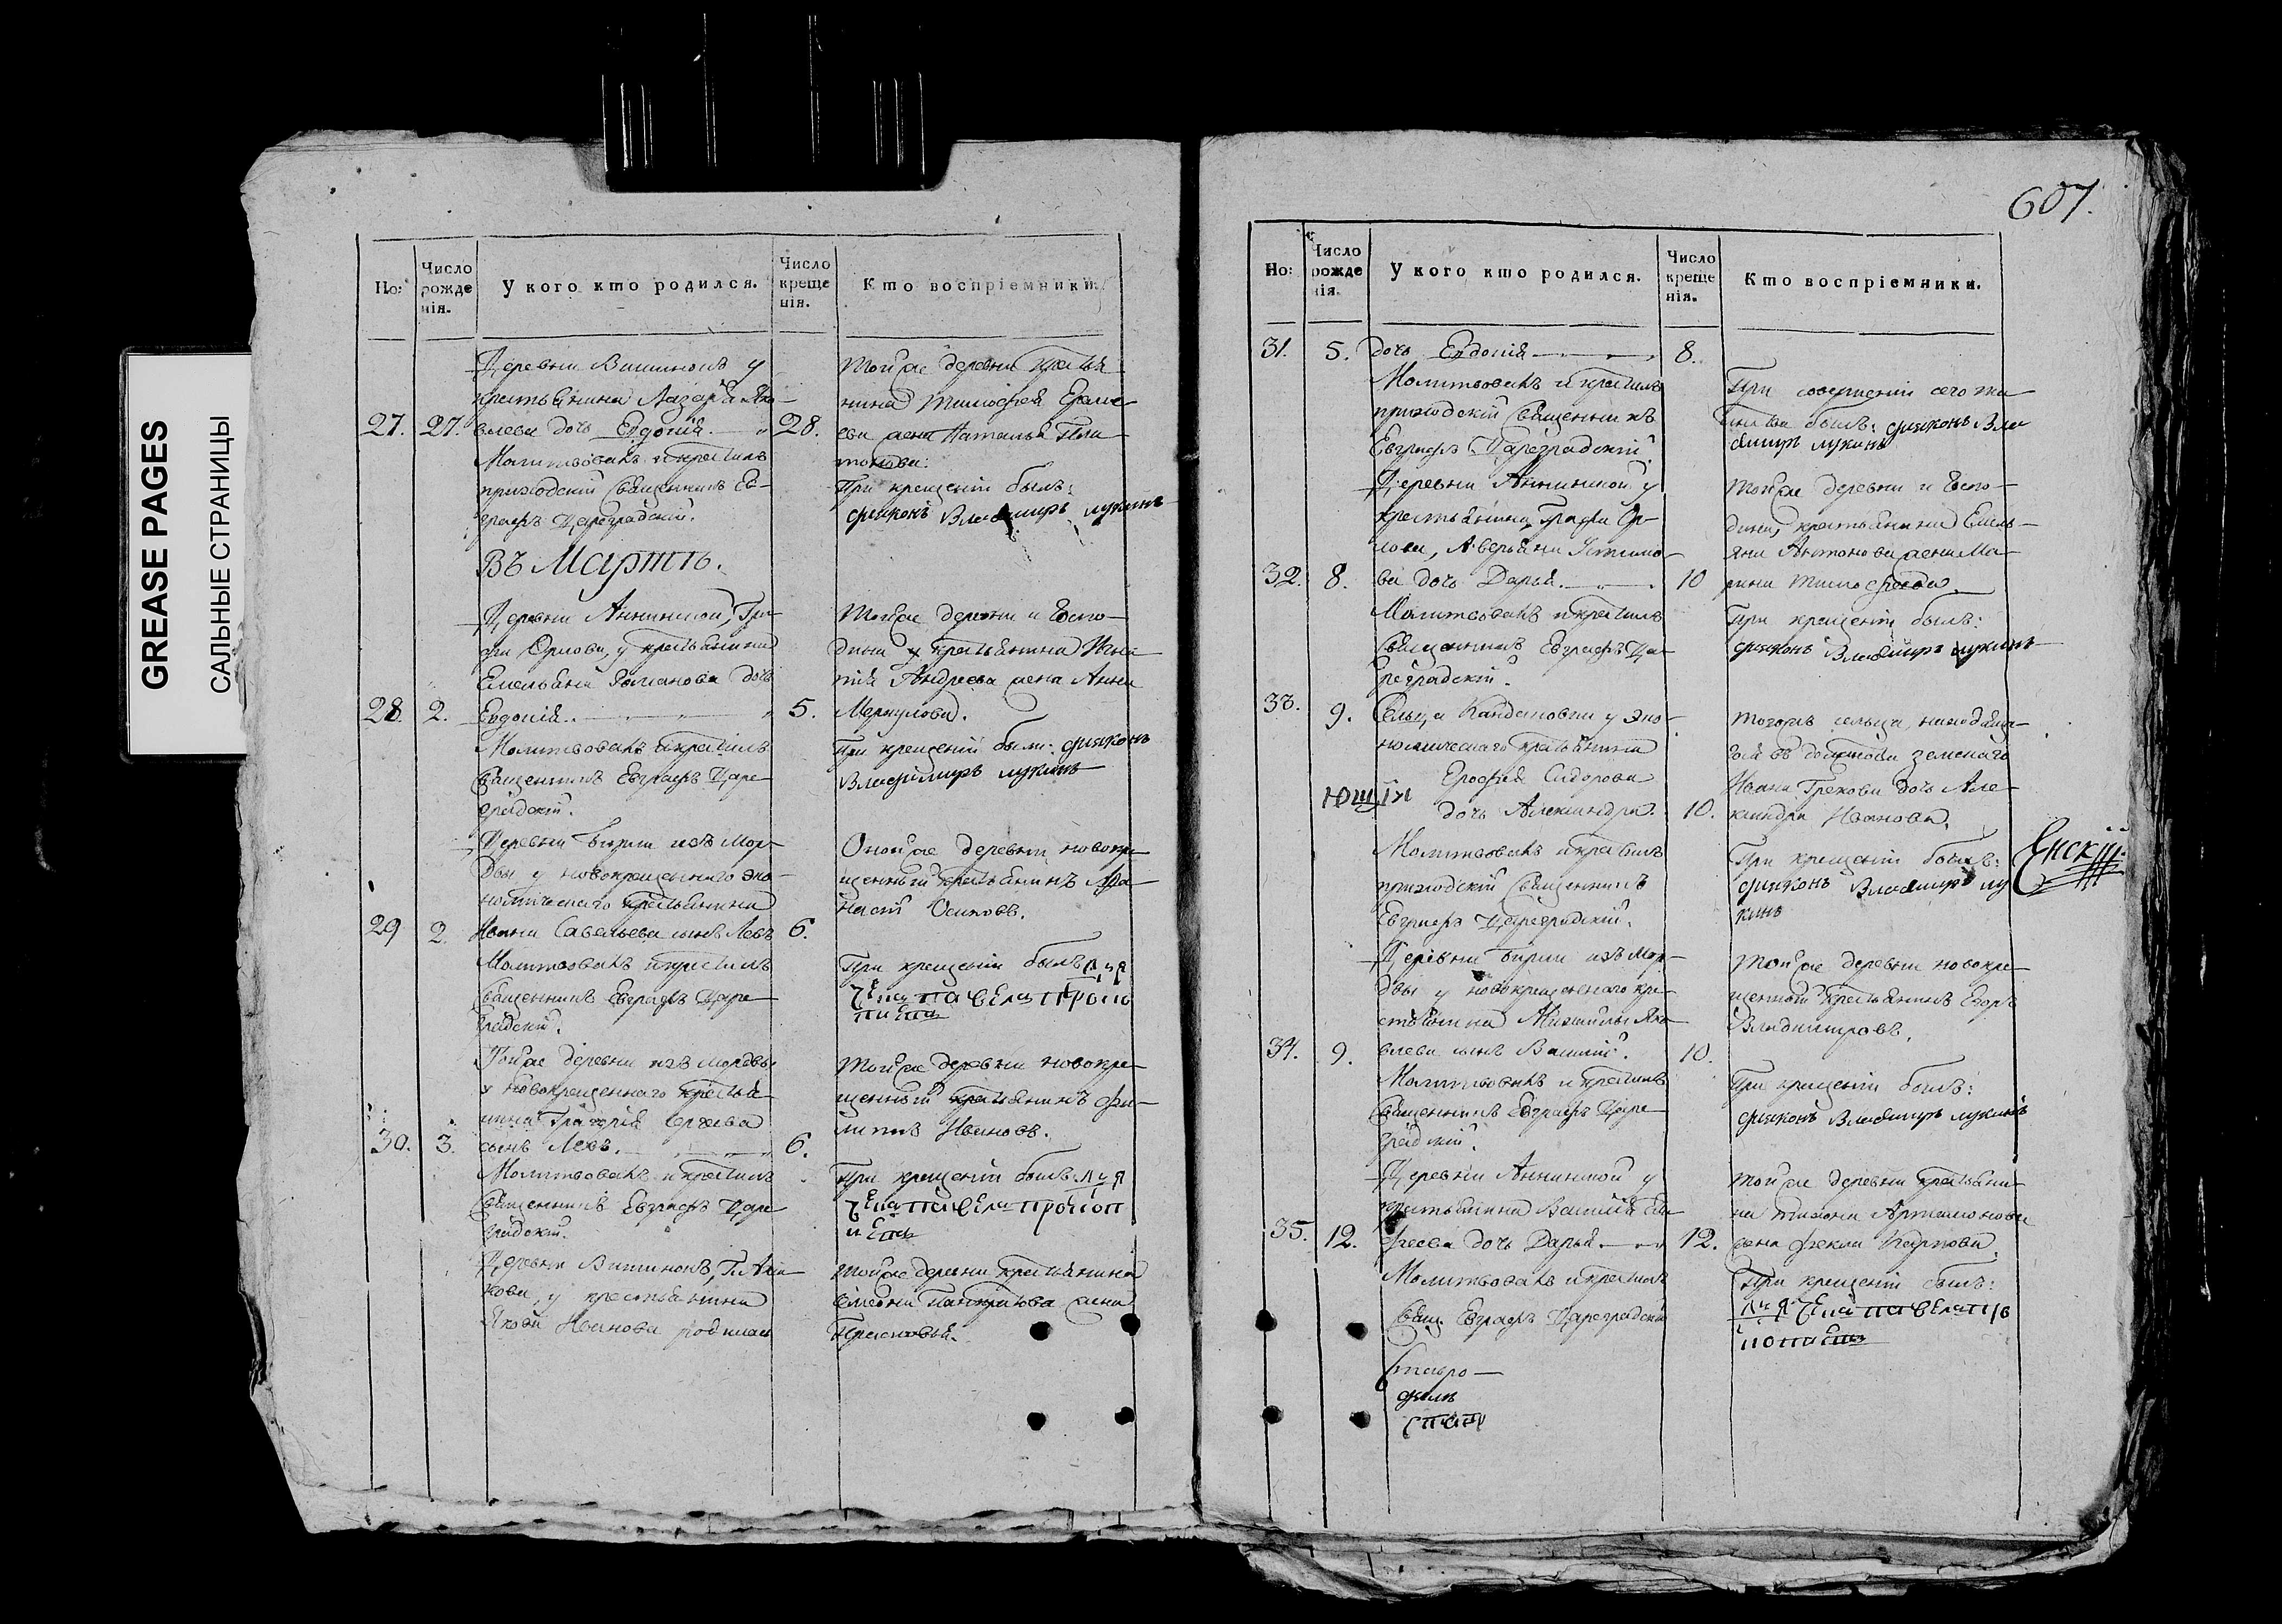 GREASE PAGES
САЛЬНЫЕ СТРАНИЦЫ
Но:
Число рожде нія.
У кого кто родился.
Число креще нія.
Кто воспріемники.
Деревни Вишинокъ у
крестьянина Лазаря Яко-
27. 27. влева дочь Евдокія. 28.
Молитвовалъ и крестилъ
приходскій Священникъ Ев-
графъ Цареградскій.
Тойже деревни крестья
нина Тимофея
жена Наталья
При крещеніи былъ:
дияконъ Владимиръ лукинъ
Въ Мартѣ.
Деревни Аннинской, Гра-
фа Орлова, у крестьянина
Емельяна Романова дочь
28. 2. Евдокія. 5.
Молитвовалъ и крестилъ
Священникъ Евграфъ Царе
градскій.
Тойже деревни и Госпо-
дина крестьянина Игна
тія Андреева жена Анна
Меркулова.
При крещеніи были: дияконъ
Владимиръ лукинъ
Деревни Бирли изъ Мор-
двы у новокрещеннаго эко-
номическаго крестьянина
29 2. Ивана Савельева сынъ Левъ 6.
Молитвовалъ и крестилъ
Священникъ Евграфъ Царе
градскій.
Онойже деревни новокре
щенный крестьянинъ Афа-
насій Осиповъ.
При крещеніи былъ
Тойже деревни изъ мордвы
у новокрещеннаго крестья-
нина Григорія Сергеева
30. 3. сынъ Левъ. 6.
Молитвовалъ и крестилъ
Священникъ Евграфъ Царе
градскій.
Тойже деревни новокре-
щенный крестьянинъ Фи-
липъ Ивановъ.
При крещеніи былъ
Деревни Вишинокъ,
кова, у крестьянина
Якова Иванова родилась
Тойже деревни крестьянина
Семена Панкратова жена
Прасковья.
607.
Но:
Число рожде нія.
У кого кто родился.
Число креще нія.
Кто воспріемники.
31. 5. дочь Евдокія 8.
Молитвовалъ и крестилъ
приходскій Священникъ
Евграфъ Цареградскій.
При совершеніи сего та
инства былъ: дияконъ Вла
димиръ лукинъ
Деревни Аннинской у
крестьянина Графа Ор-
лова, Аверьяна Устино-
32. 8. ва дочь Дарья. 10
Молитвовалъ и крестилъ
Священникъ Евграфъ Ца-
реградскій.
Тойже деревни и Госпо-
дина, крестьянина Емель-
яна Антонова жена Ма-
рина Тимофеева.
При крещеніи былъ:
дияконъ Владимиръ лукинъ
33. 9. Сельца Кандаковки у эко-
номическаго крестьянина
Ерофея Сидорова
ющій
дочь Александра. 10.
Молитвовалъ и крестилъ
приходскій Священникъ
Евграфъ Цареградскій.
тогожъ сельца, находяща-
гося въ должности земскаго
Ивана Грекова дочь Але-
ксандра Иванова.
При крещеніи былъ:
дияконъ Владимиръ лу
кинъ
Енскій
Деревни Бирли изъ Мор-
двы у новокрещеннаго кре-
стьянина Михайлы Яко-
34. 9. влева сынъ Василій. 10.
Молитвовалъ и крестилъ
Священникъ Евграфъ Царе
градскій.
Тойже деревни новокре-
щенный крестьянинъ Егоръ
Владимировъ.
При крещеніи былъ:
дияконъ Владимиръ лукинъ
Деревни Аннинской у
крестьянина Василія
35. 12. дочь Дарья. 12.
Молитвовалъ и крестилъ
Свящ. Евграфъ Цареградскій
Тойже деревни крестьяни-
на Тихона Артамонова
жена Фекла Карпова.
При крещеніи былъ:
Ставро-